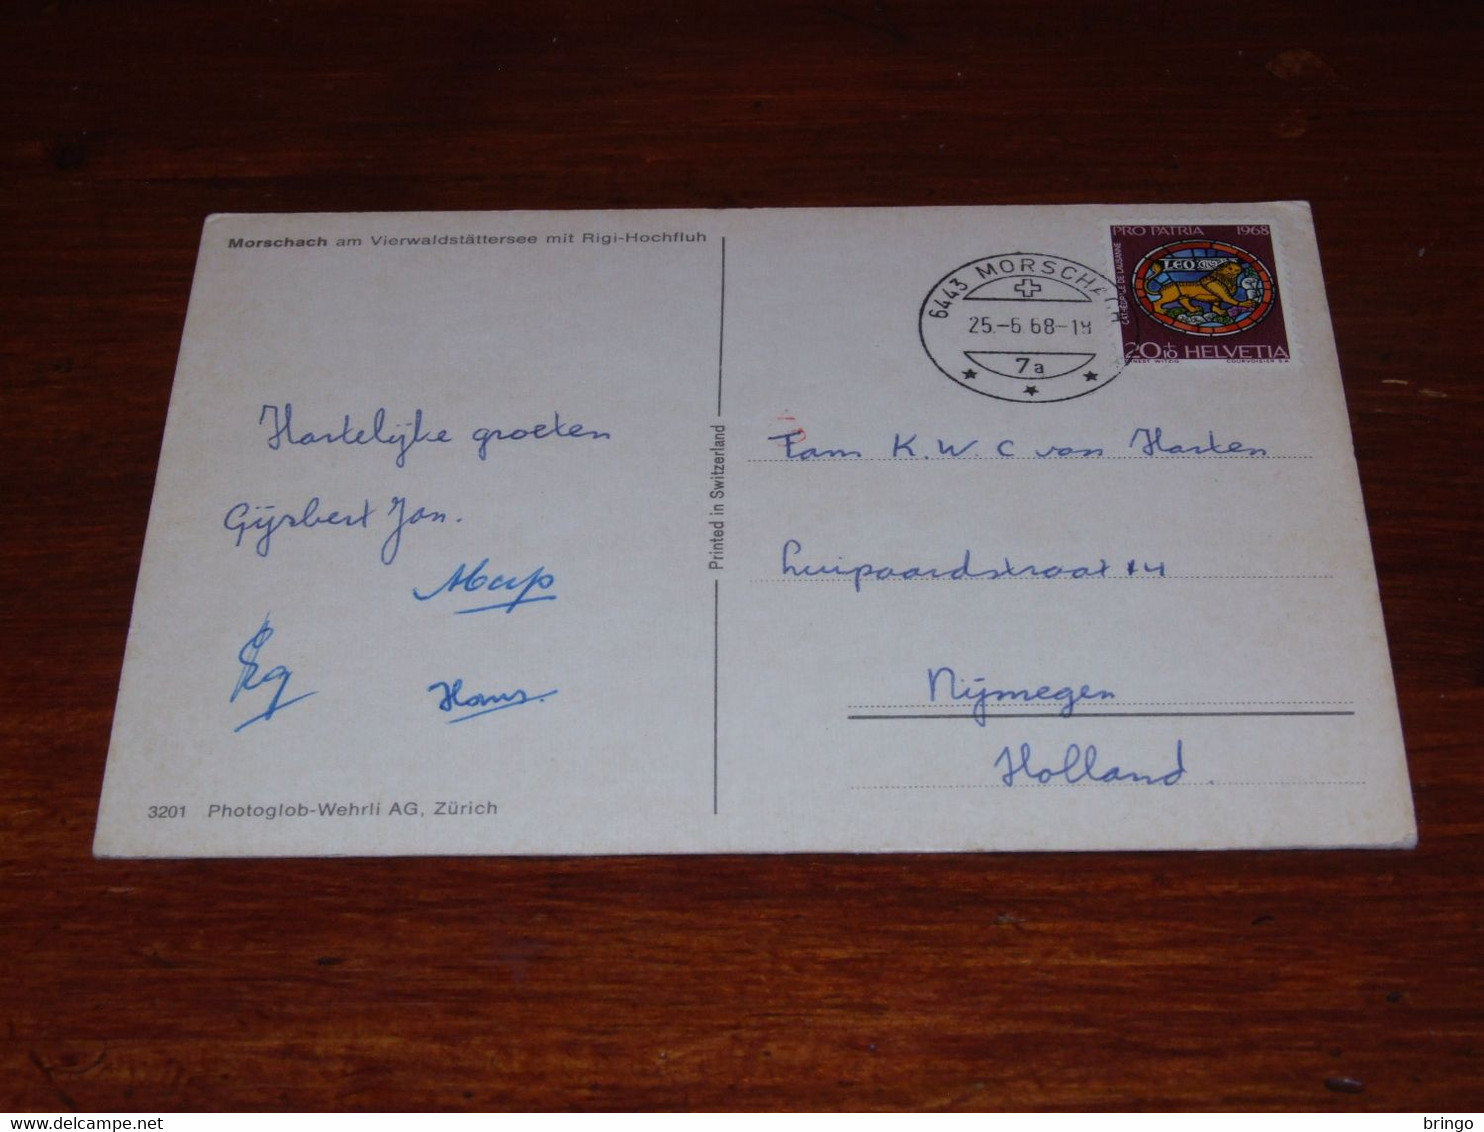 Morschach am Vierwaldstättersee mit Rigi-Hochfluh
Hartelijke groeten
Gijsbert Jan.
Hans.
3201 Photoglob-Wehrli AG, Zürich
Printed in Switzerland
6443 MORSCHACH
25.-6.68-18
7a
PRO PATRIA 1968
CATHEDRALE DE LAUSANNE
LEO
20+10 HELVETIA
ERNEST WITZIG COURVOISIER S.A.
Fam K.W.C van Harten
Luipaardstraat 14
Nijmegen
Holland.
bringo